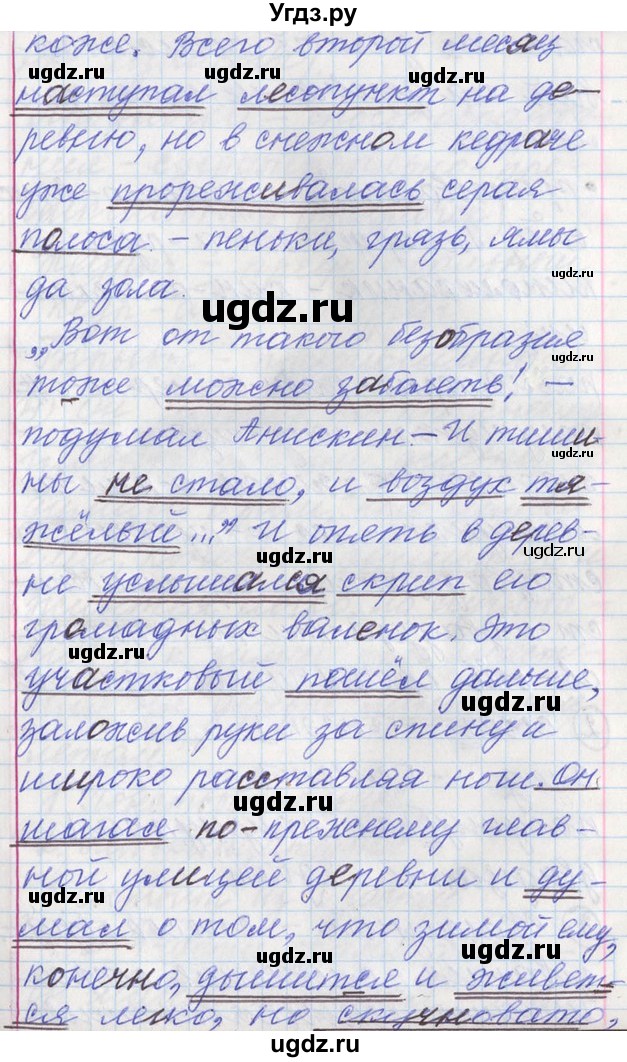 Угдз.ру
коже. Всего второй месяц
наступал лесопункт на де-
ревню, но в снежном кедраче
уже прореживалась серая
полоса – пеньки, грязь, ямы
да зола.
„Вот от такого безобразия
тоже можно заболеть! –
подумал Анискин – И тиши
ны не стало, и воздух тя-
жёлый...” И опять в дерев-
не услышался скрип его
громадных валенок. Это
участковый пошёл дальше,
заложив руки за спину и
широко расставляя ноги. Он
шагал по-прежнему глав-
ной улицей деревни и ду-
мал о том, что зимой ему,
конечно, дышится и живёт-
ся легко, но скучновато,
ugdz.ru